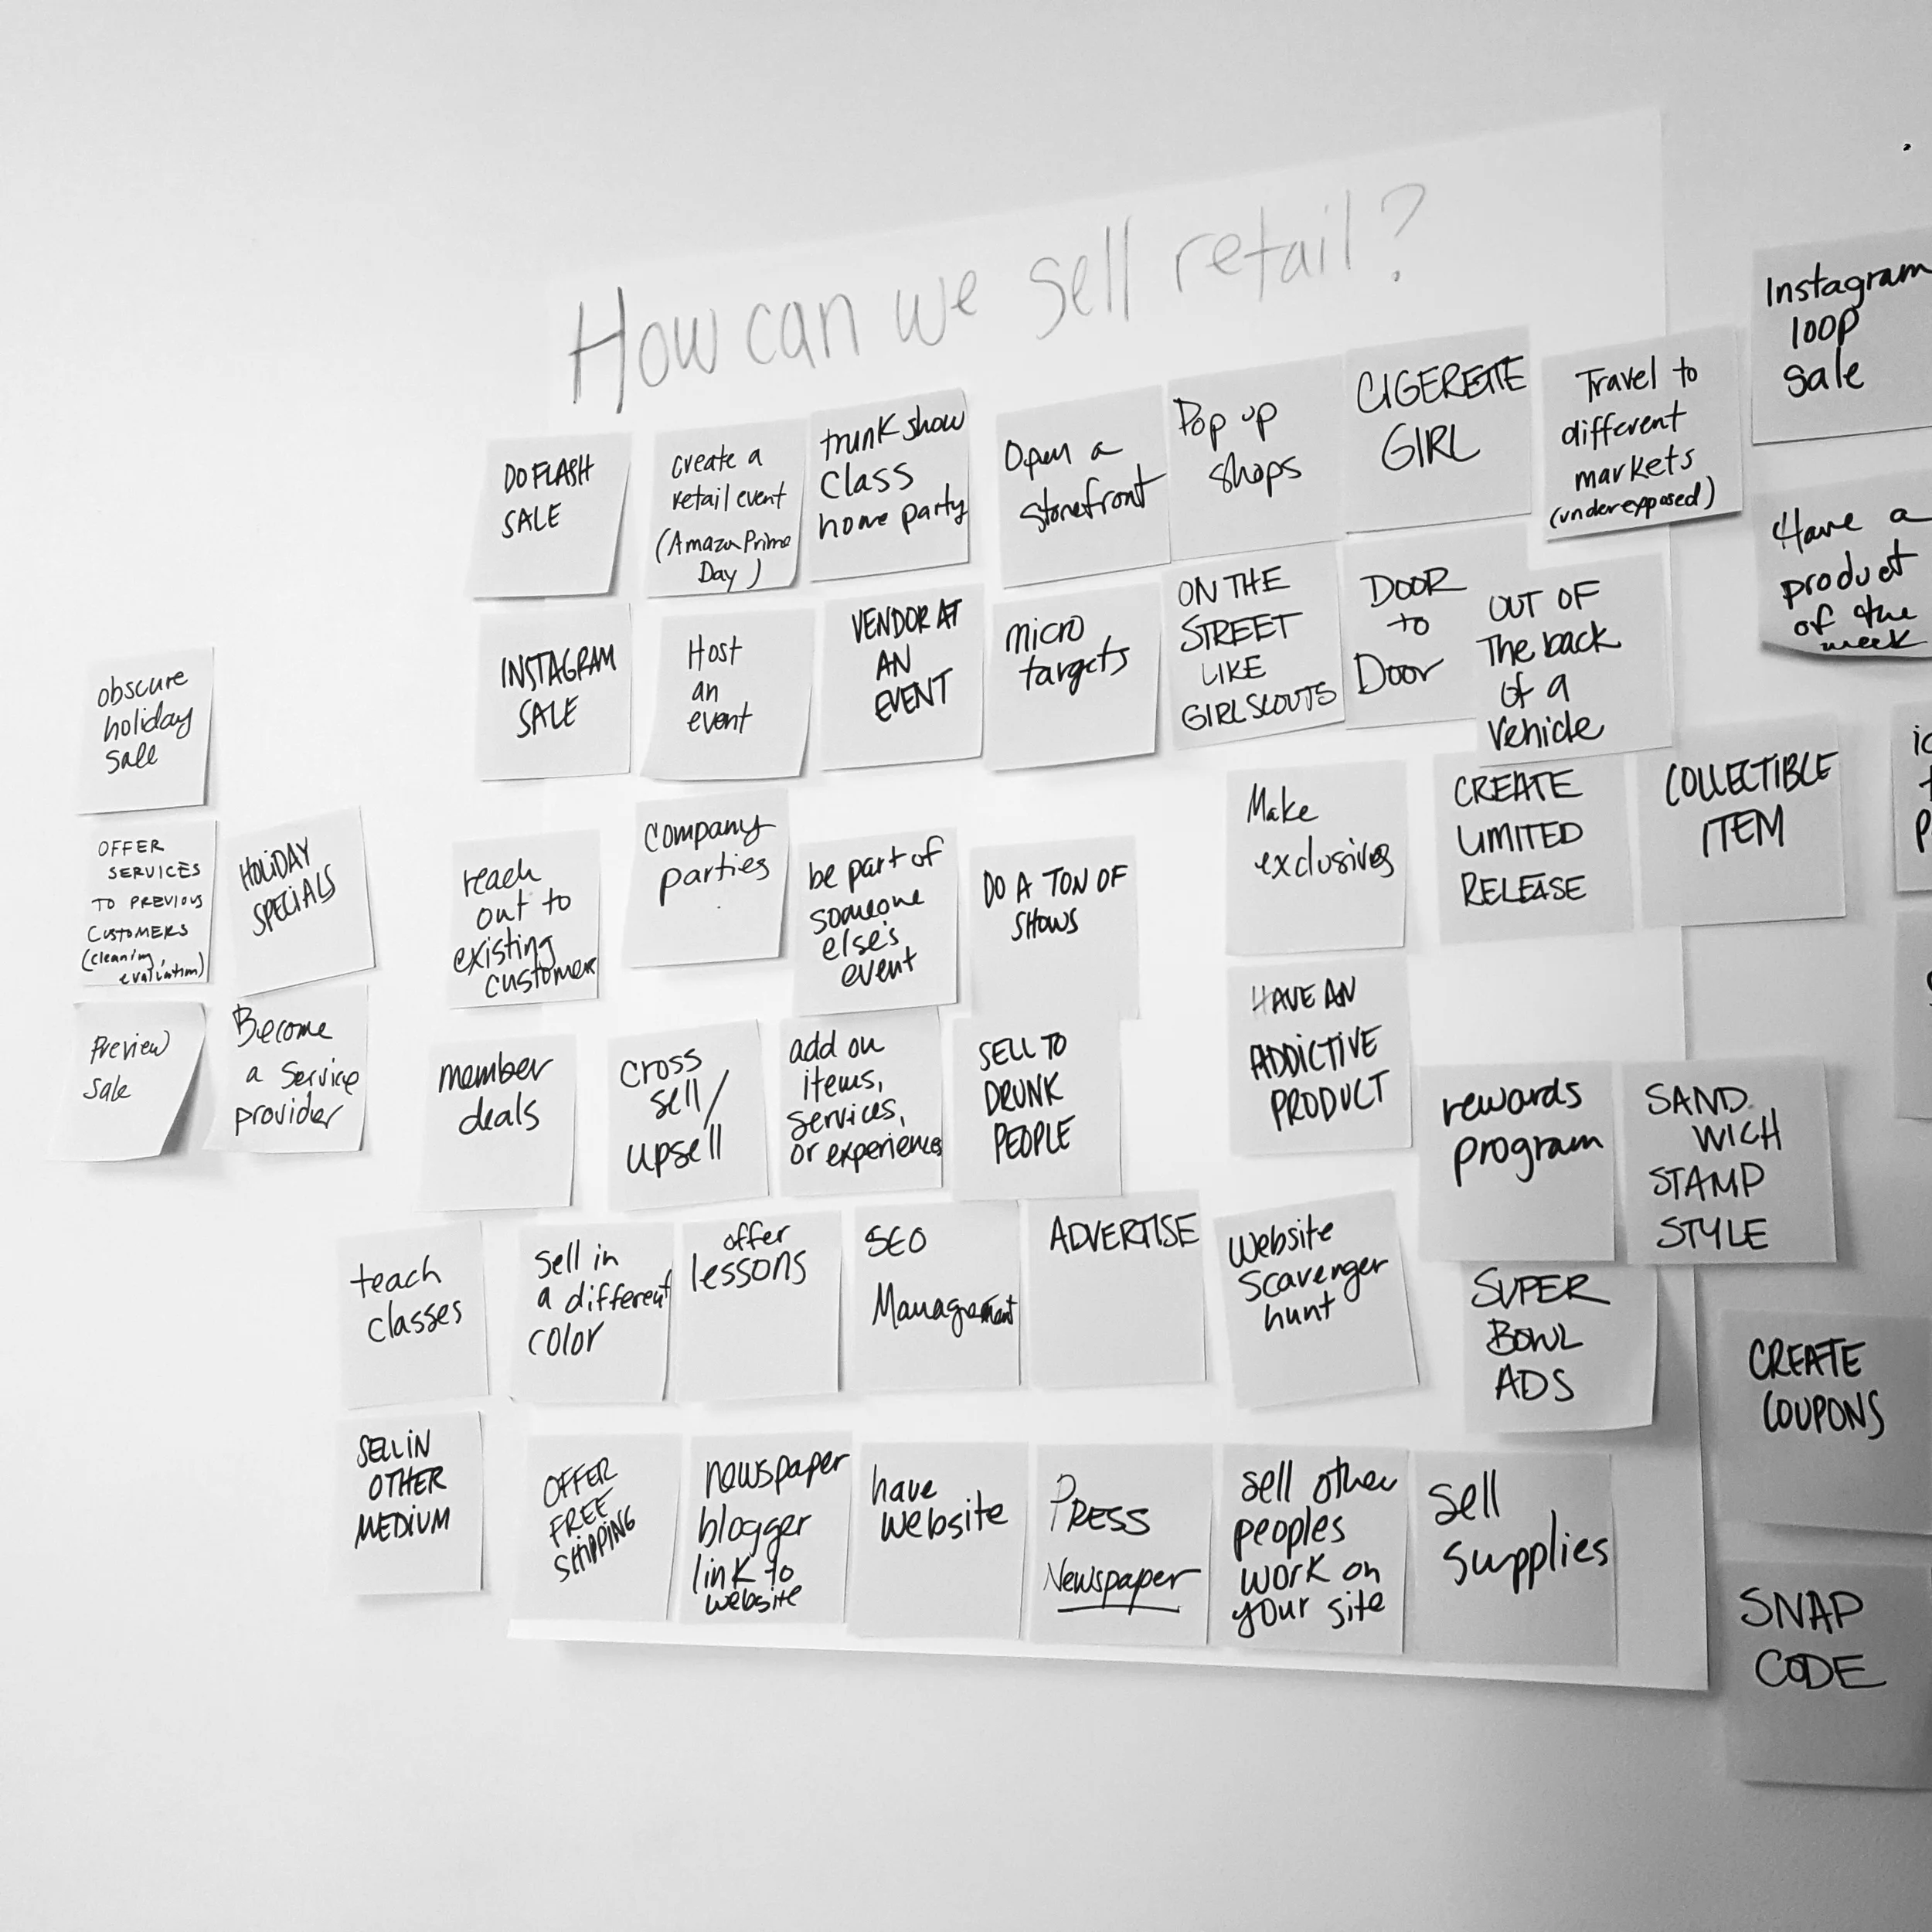 How can we sell retail?
DO FLASH
SALE
create a
retail event
(Amazon Prime
Day)
trunk show
class
home party
Open a
storefront
Pop up
shops
CIGERETTE
GIRL
Travel to
different
markets
(underexposed)
Instagram
loop
sale
INSTAGRAM
SALE
Host
an
event
VENDOR AT
AN
EVENT
micro
targets
ON THE
STREET
LIKE
GIRLSCOUTS
DOOR
to
DOOR
OUT OF
The back
of a
vehicle
Have a
product
of the
week
obscure
holiday
sale
OFFER
SERVICES
TO PREVIOUS
CUSTOMERS
(cleaning,
evaluation)
HOLIDAY
SPECIALS
Preview
Sale
Become
a Service
provider
reach
out to
existing
customers
Company
parties
be part of
someone
else's
event
DO A TON OF
SHOWS
Make
exclusives
CREATE
LIMITED
RELEASE
COLLECTIBLE
ITEM
member
deals
cross
sell/
upsell
add on
items,
services,
or experiences
SELL TO
DRUNK
PEOPLE
HAVE AN
ADDICTIVE
PRODUCT
rewards
program
SAND
WICH
STAMP
STYLE
teach
classes
sell in
a different
color
offer
lessons
SEO
Management
ADVERTISE
Website
Scavenger
hunt
SUPER
BOWL
ADS
CREATE
COUPONS
SELL IN
OTHER
MEDIUM
OFFER
FREE
SHIPPING
newspaper
blogger
link to
website
have
website
PRESS
Newspaper
sell other
peoples
work on
your site
sell
supplies
SNAP
CODE